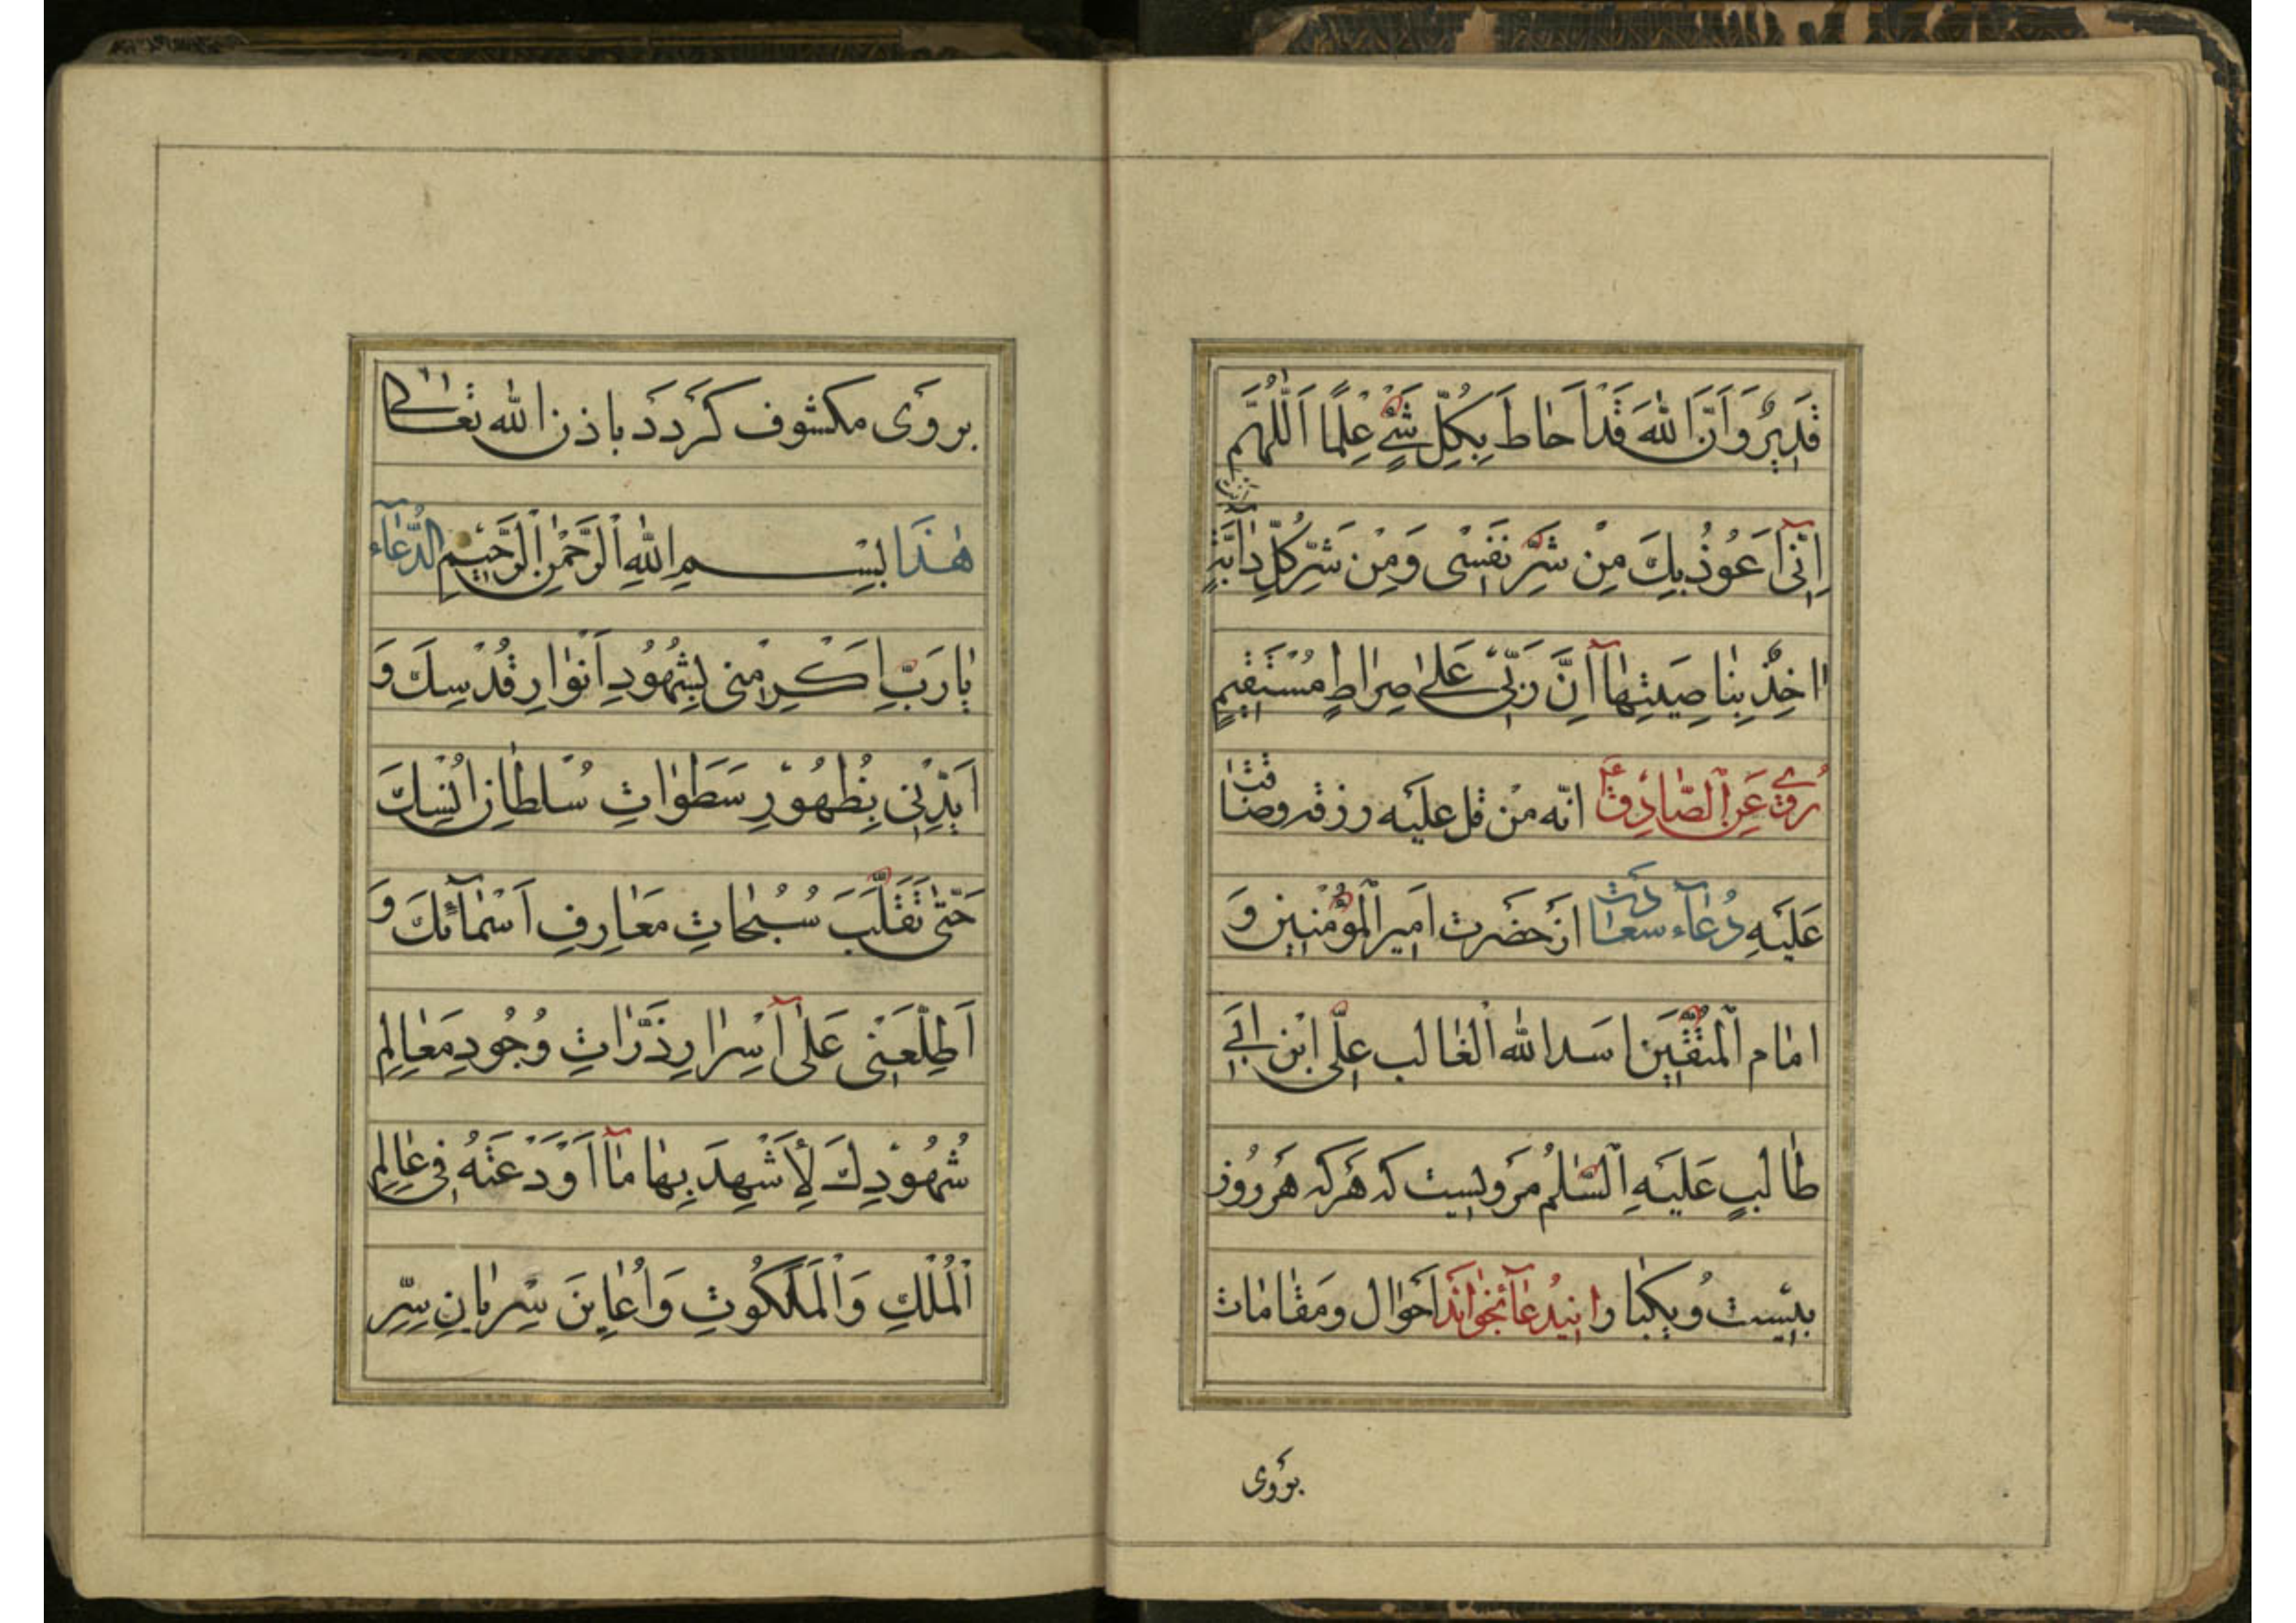 قَدِيرٌ وَاَنَّ اللهَ قَدْ اَحاطَ بِكُلِّ شَيْءٍ عِلْمًا اَللّٰهُمَّ
اِنّٰى اَعُوذُ بِكَ مِنْ شَرِّ نَفْسِى وَمِنْ شَرِّ كُلِّ دابَّةٍ اَنْتَ
اٰخِذٌ بِناصِيَتِهٰا اِنَّ رَبِّى عَلىٰ صِراطٍ مُسْتَقِيمٍ
رُوِىَ عَنِ الصّٰادِقِ انّه مَنْ قل عليه رزقه وضاقت
عَلَيْهِ دُعآء سعادت از حَضَرت امير المؤمنين وَ
امام المتّقين اسد الله الغالب علىّ ابن ابى
طالبٍ عَلَيْهِ السَّلٰمُ مرويست كه هَر كه هَر روز
بيست ويكبار اين دُعآ بخواند احوال ومقامات
بروى
بروى مكشوف كردد باذن الله تعالى
هٰذَا بِسْمِ اللهِ الرَّحْمٰنِ الرَّحِيمِ الدُّعآء
يا رَبِّ اَكْرِمْنى بِشُهُودِ اَنْوارِ قُدْسِكَ وَ
اَيِّدْنِى بِظُهُورِ سَطَواتِ سُلْطانِ اُنْسِكَ
حَتّىٰ تَقَلَّبَ سُبُحاتِ مَعارِفِ اَسْمآئكَ وَ
اَطْلِعْنِى عَلىٰ اَسْرارِ ذَرّاتِ وُجُودِ مَعالِمِ
شُهُودِكَ لِاَشْهَدَ بِها ما اَوْدَعْتَهُ فى عالَمِ
الْمُلْكِ وَالْمَلَكُوتِ وَاُعايِنَ سَرَيانِ سِرِّ